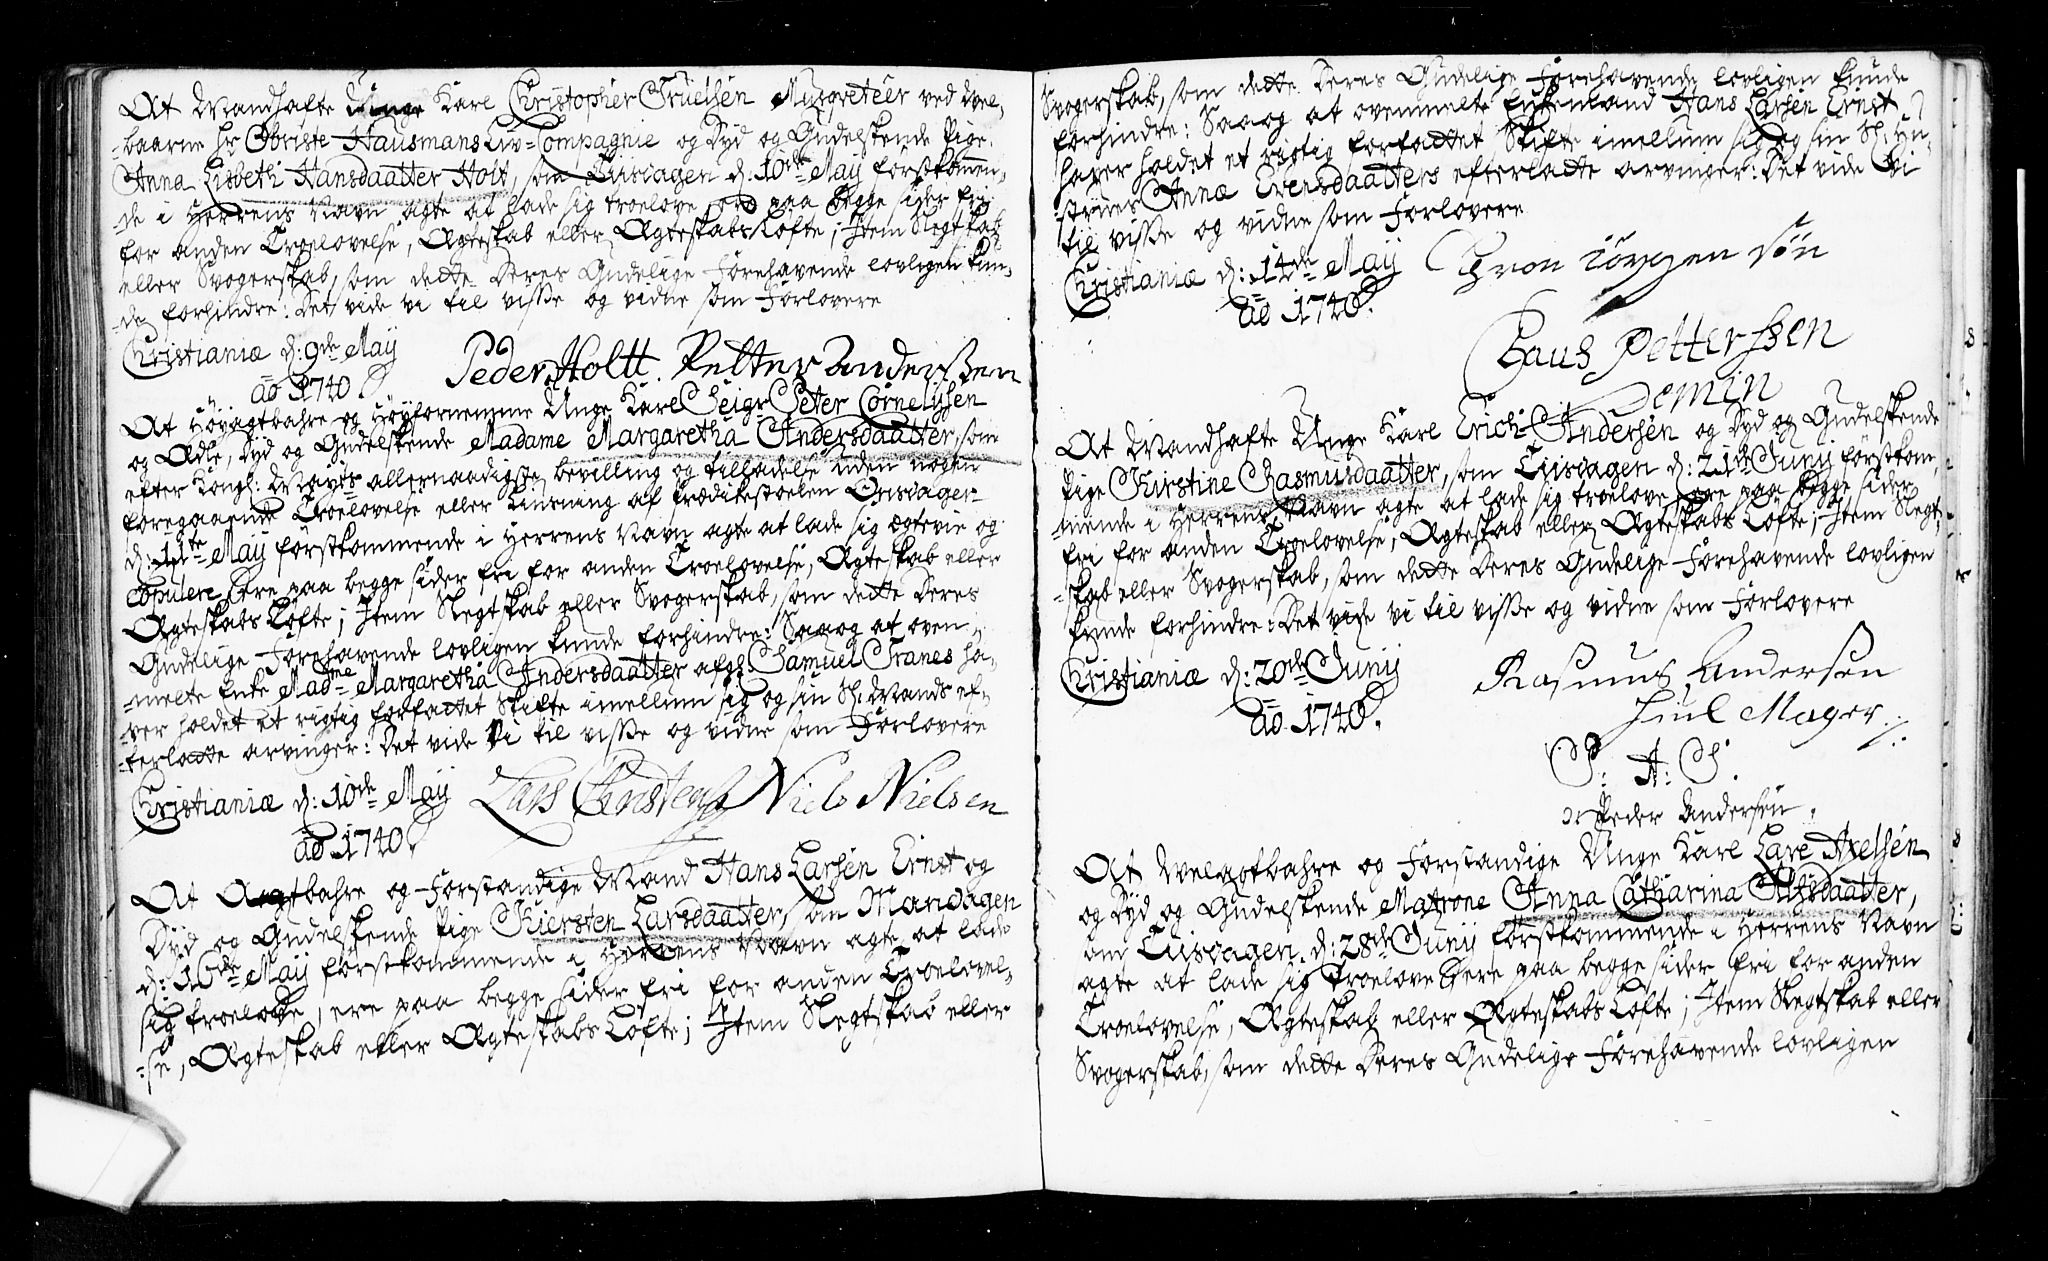 At Mandhafte Unge Karl Christopher Truelsen Musqueteer ved Wel-
-baarne Hr Obriste Hausmans Liv-Compagnie og Dyd og Gudelskende Pige
Anna Lisbeth Hansdaatter Holt, som Tiisdagen d: 10de Maij förstkommen-
-de i Herrens Navn agte at lade sig troelove, ere paa begge sider fri
for anden Troelovelse, Ægteskab eller Ægteskabs Löfte; Item Slegtskab
eller Svogerskab, som dette Deres Gudelige Forehavende lovligen kun-
-de forhindre: Det vide vi til visse og vidne som Forlovere
Christianiæ d: 9de Maij
ao 1740
Peder Holtt. Petter Anderssen
At Höyagtbahre og Höyfornemme Unge Karl Seigr Peter Cornelissen
og Ædle, Dyd og Gudelskende Madame Margaretha Andersdaatter, som
efter Kongl: Mayts allernaadigste bevilling og tilladelse uden nogen
foregaaende Troelovelse eller Liusning af Prædikestoelen Onsdagen
d: 11te Maij förstkommende i Herrens Navn agte at lade sig ægtevie og
copulere, Ere paa begge sider fri for anden Troelovelse, Ægteskab eller
Ægteskabs Löfte; Item Slegtskab eller Svogerskab, som dette Deres
Gudelige Forehavende lovligen kunde forhindre: Saa og at oven-
-melte Enke Madme Margaretha Andersdaatter afg: Samuel Tranes ha-
-ver holdet et rigtig forfattet Skifte imellum sig og sin Sl: Mands ef-
-terladte arvinger: Det vide Vi til visse og vidne som Forlovere
Christianiæ d: 10de Maij
ao 1740
Lars Christens Niels Nielsen
At Agtbahre og Forstandige Mand Hans Larsen Ernst og
Dyd og Gudelskende Pige Kiersten Larsdaatter, som Mandagen
d: 16de Maij förstkommende i Herrens Navn agte at lade
sig troelove, ere paa begge sider fri for anden Troelovel-
-se, Ægteskab eller Ægteskabs Löfte; Item Slegtskab eller
Svogerskab, som dette Deres Gudelige Forehavende lovligen kunde
forhindre: Saa og at ovenmelte Enkemand Hans Larsen Ernst
haver holdet et rigtig forfattet Skifte imellum sig og sin Sl: Hu-
-strues Annæ Evensdaatters efterladte arvinger: Det vide Vi
til visse og vidne som Forlovere
Christianiæ d: 14de Maij
ao 1740.
Tron iörgen sön
Claus Petterssen
Demin
At Mandhafte Unge Karl Erich Andersen og Dyd og Gudelskende
Pige Kirstine Rasmusdaatter, som Tiisdagen d: 21de Junij förstkom-
-mende i Herrens Navn agte at lade sig troelove, ere paa begge sider
fri for anden Troelovelse, Ægteskab eller Ægteskabs Löfte; Item Slegt-
-skab eller Svogerskab, som dette Deres Gudelige Forehavende lovligen
kunde forhindre: Det vide vi til visse og vidne som Forlovere
Christianiæ d: 20de Junij
ao 1740.
Rasmus Andersen
Juul Mager
P: A: S
Peder Andersen
At Welagtbahre og Forstandige Unge Karl Lare Axelsen
og Dyd og Gudelskende Matrone Anna Catharina Nilsdaatter,
som Tiisdagen d: 28de Junij förstkommende i Herrens Navn
agte at lade sig troelove, Ere paa begge sider fri for anden
Troelovelse, Ægteskab eller Ægteskabs Löfte; Item Slegtskab eller
Svogerskab, som dette Deres Gudelige Forehavende lovligen